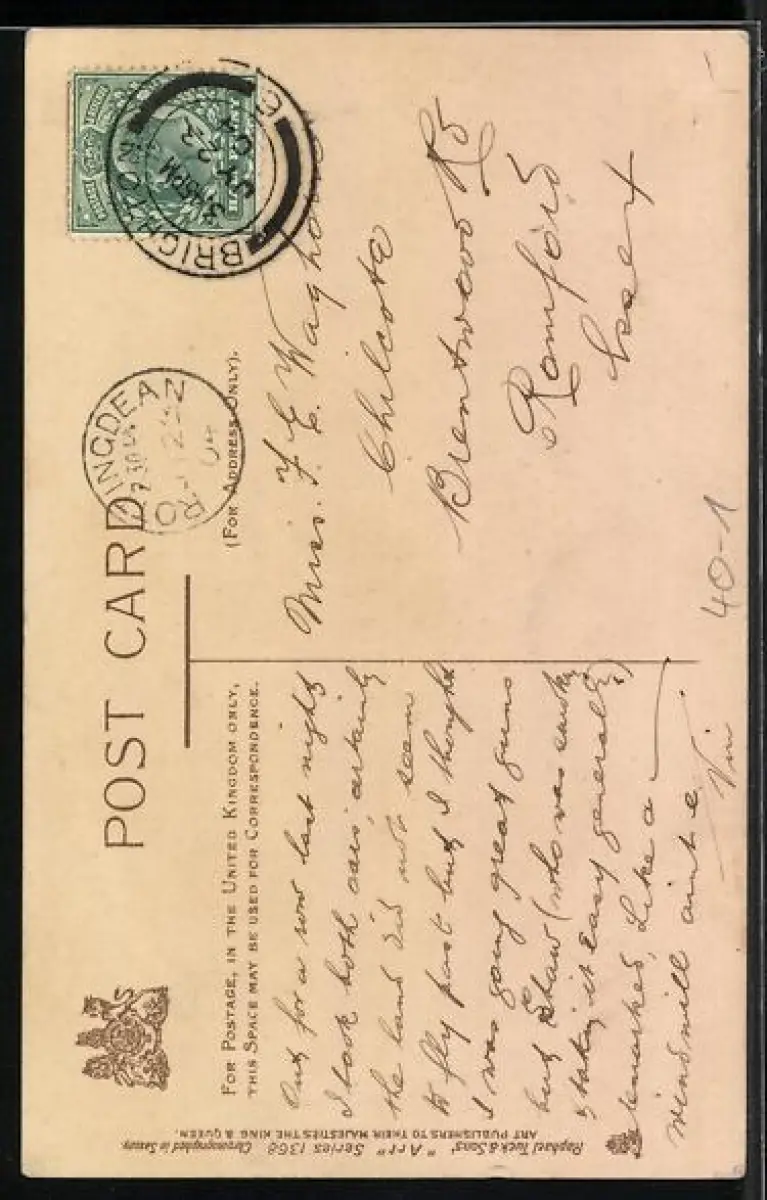 POST CARD
FOR POSTAGE, IN THE UNITED KINGDOM ONLY,
THIS SPACE MAY BE USED FOR CORRESPONDENCE.
(FOR ADDRESS ONLY).
BRIGHTON
3.45PM
JY 22
04
ROTTINGDEAN
7 30
22
04
Out for a row last night
I took both oars, certainly
the land did not seem
to fly past but I thought
I was going great guns
but Shaw (who was smoking
& taking it easy generally!)
remarked, Like a
windmill aint e
Vin
Miss. F. E. Waghorn
Chilcote
Brentwood Rd
Romford
Essex
40-1
Raphael Tuck & Sons' "Art" Series 1368 Chromographed in Saxony.
ART PUBLISHERS TO THEIR MAJESTIES THE KING & QUEEN.